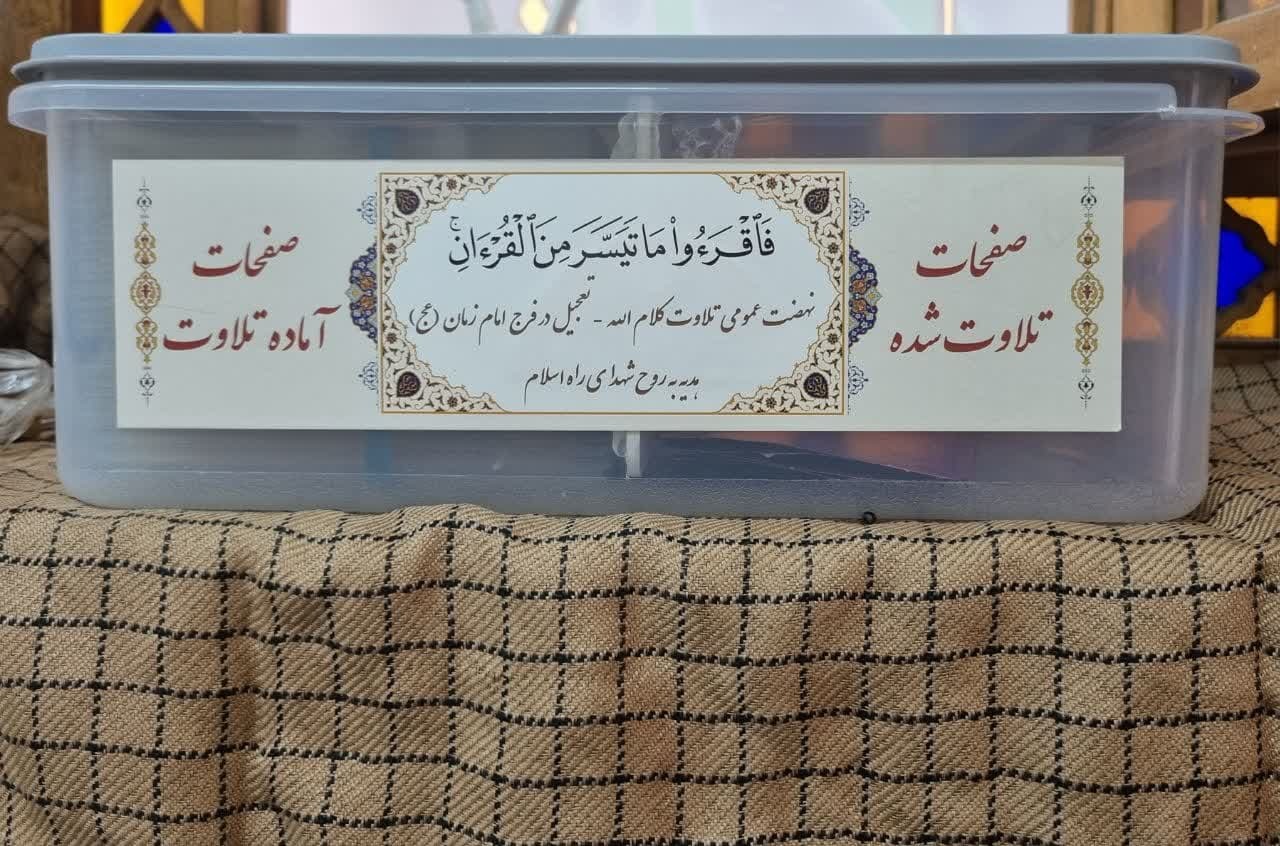 صفحات
تلاوت شده
فَٱقْرَءُوا۟ مَا تَيَسَّرَ مِنَ ٱلْقُرْءَانِ ۚ
نهضت عمومی تلاوت کلام الله - تعجیل در فرج امام زمان (عج)
هدیه به روح شهدای راه اسلام
صفحات
آماده تلاوت